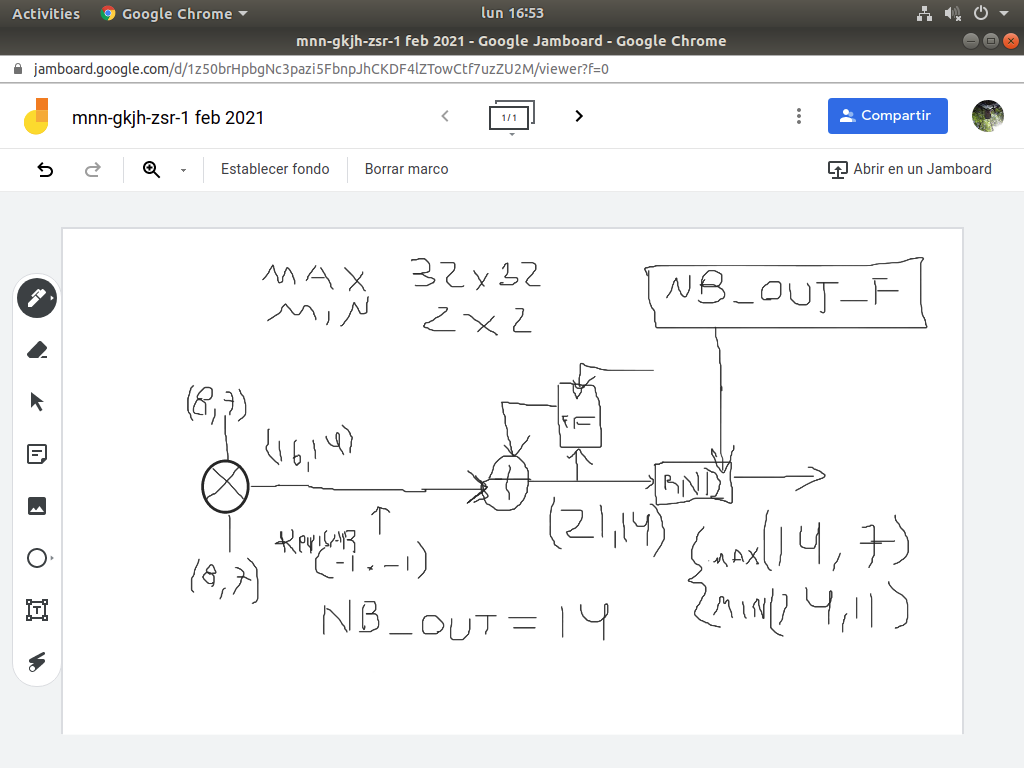 Activities Google Chrome lun 16:53
mnn-gkjh-zsr-1 feb 2021 - Google Jamboard - Google Chrome
jamboard.google.com/d/1z50brHpbgNc3pazi5FbnpJhCKDF4lZTowCtf7uzZU2M/viewer?f=0
mnn-gkjh-zsr-1 feb 2021
1/1
Compartir
Establecer fondo
Borrar marco
Abrir en un Jamboard
MAX 32x32
MIN 2x2
NB_OUT_F
(8,7)
FF
(16,14)
RND
(21,14)
(-1 . -1)
(8,7)
{MAX(14,7)
{MIN(14,11)
NB_OUT = 14